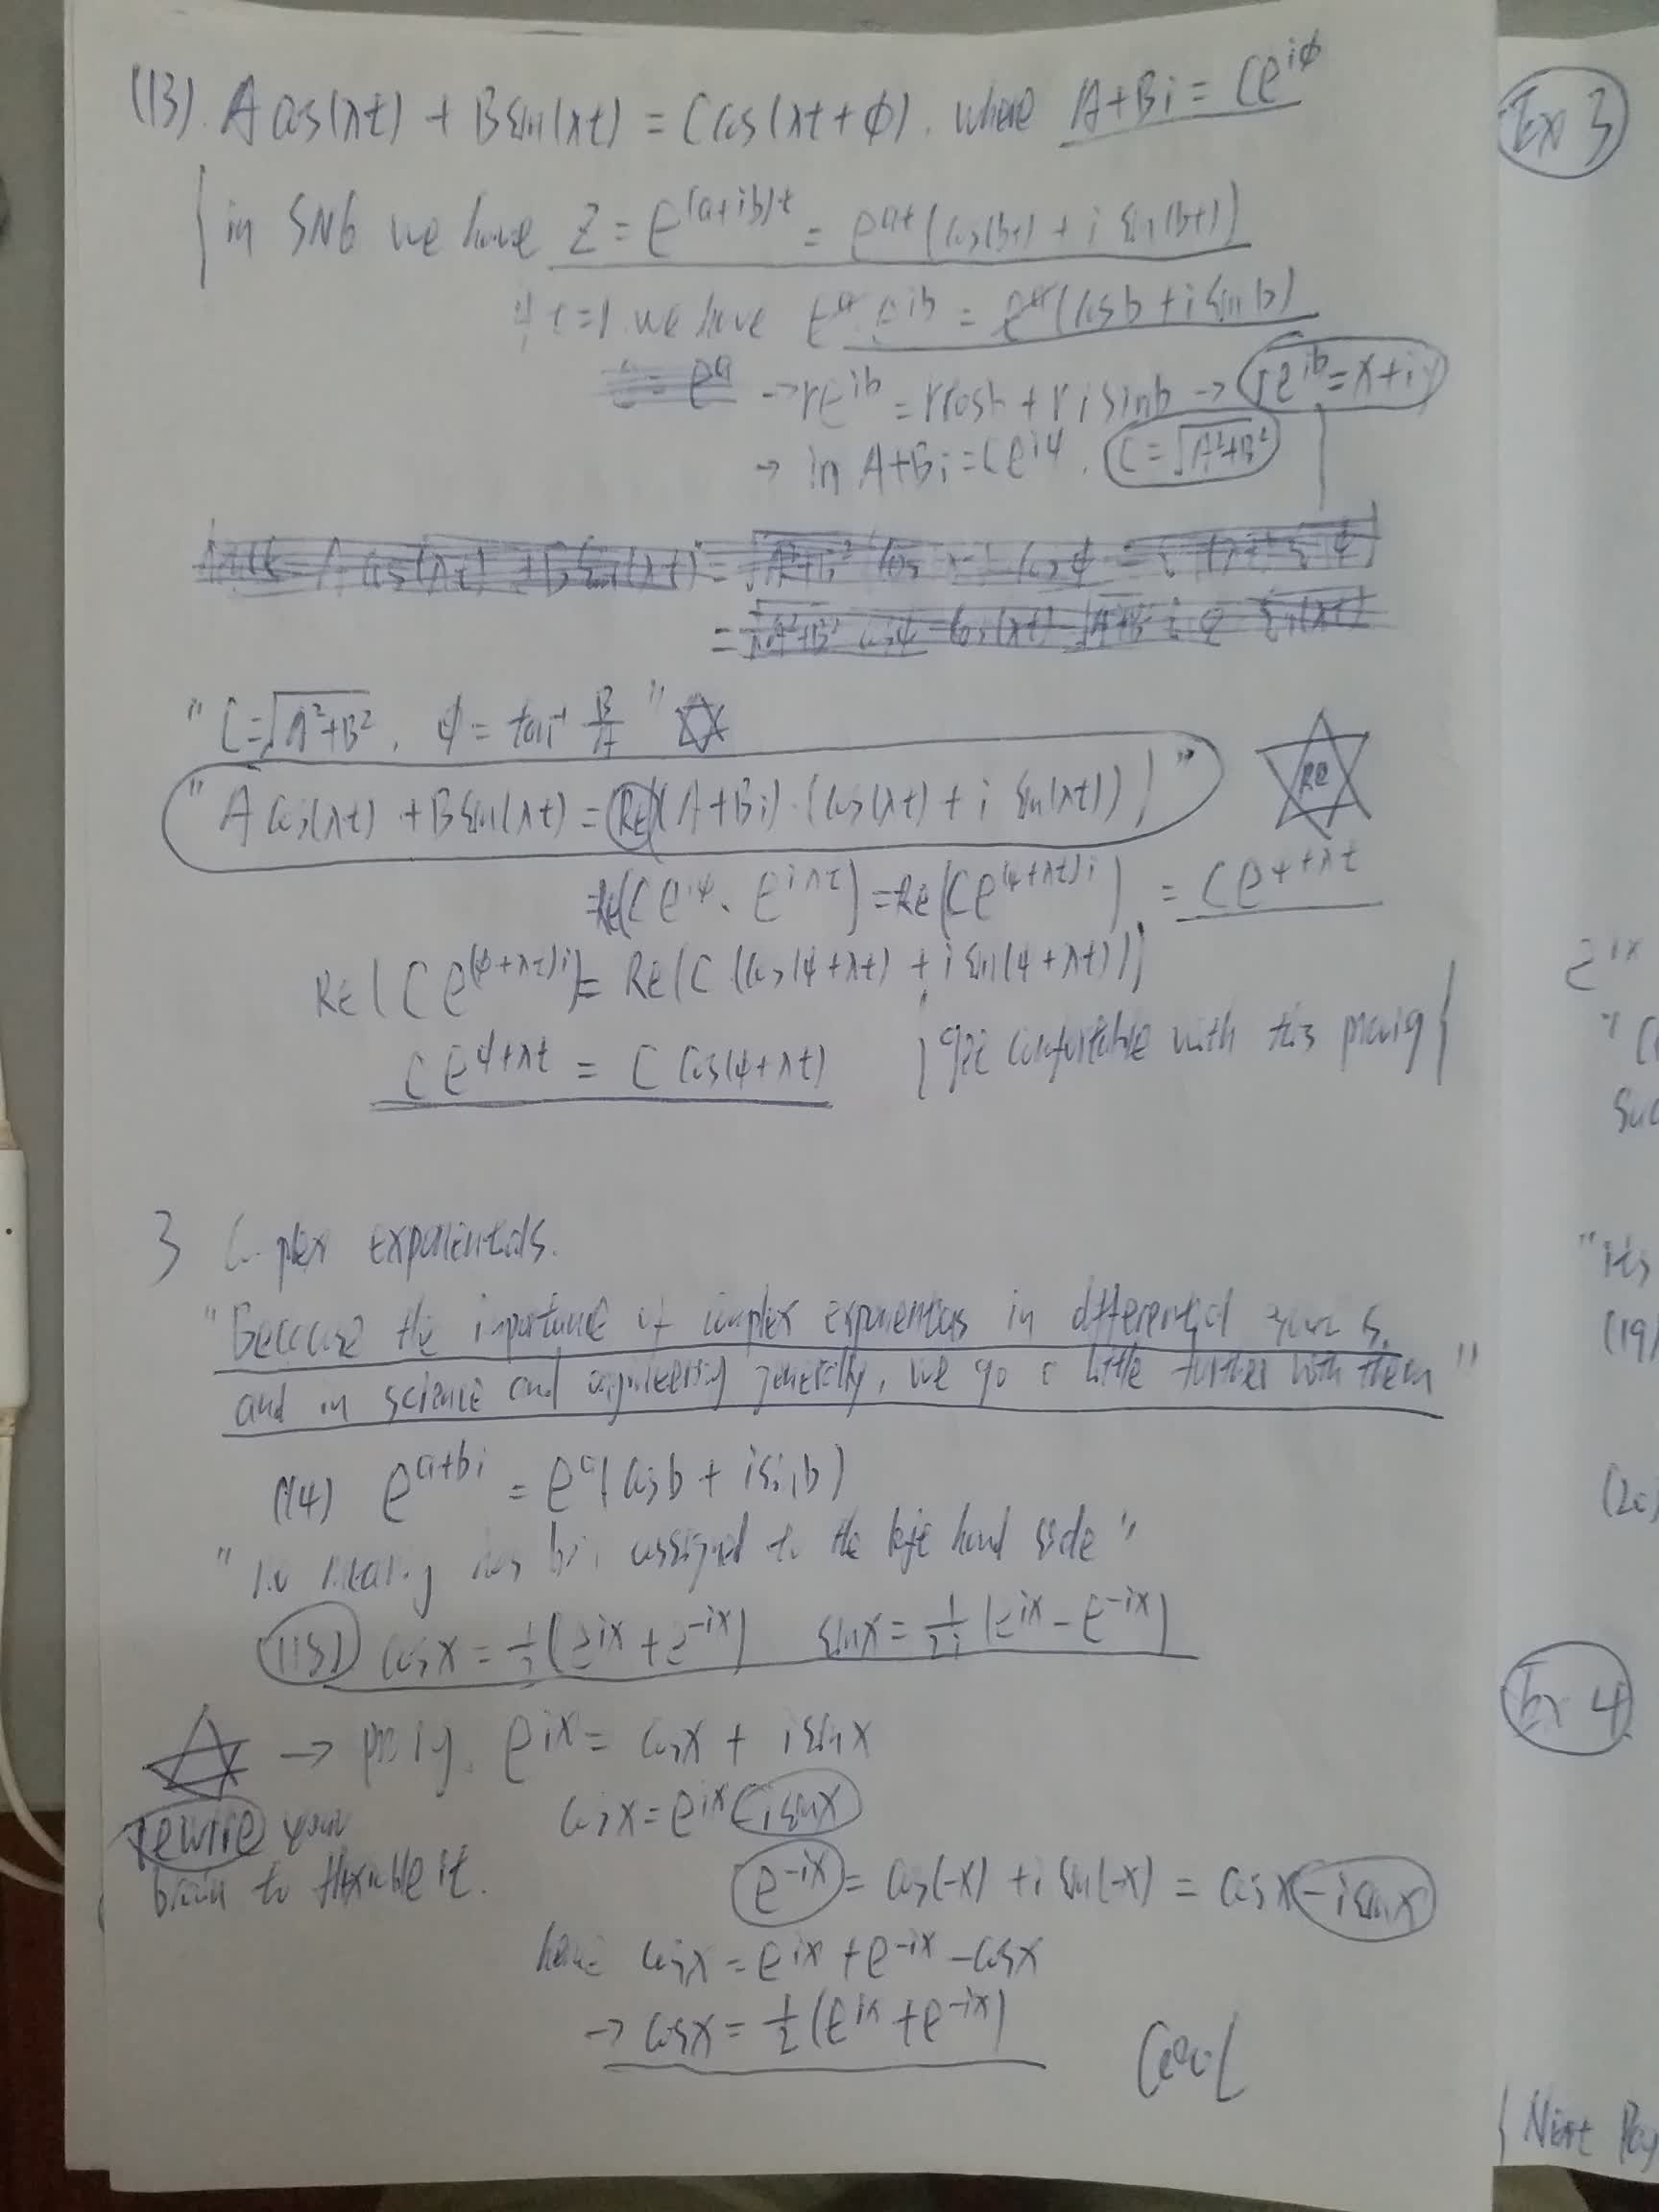 (13). A cos(λt) + B sin(λt) = C cos(λt + φ). where A+Bi = Ce^{iφ}
in SN6 we have z = e^{(a+ib)t} = e^{at}(cos(bt) + i sin(bt))
if t=1. we have e^a · e^{ib} = e^a(cosb + i sinb)
= e^a → re^{ib} = rcosb + r i sinb → re^{ib} = x+iy
→ in A+Bi = Ce^{iφ}. C = √(A²+B²)
"C = √(A²+B²), φ = tan⁻¹ B/A"
"A cos(λt) + B sin(λt) = Re((A+Bi)·(cos(λt) + i sin(λt)))"
RE
= Re(Ce^{iφ} · e^{iλt}) = Re(Ce^{(φ+λt)i}) = Ce^{φ+λt}
Re(Ce^{(φ+λt)i}) = Re(C(cos(φ+λt) + i sin(φ+λt)))
Ce^{φ+λt} = C cos(φ+λt) get comfortable with this proving
3 Complex exponentials.
"Because the importance of complex exponentials in differential
and in science and engineering generally, we go a little further with them"
(14) e^{a+bi} = e^a(cosb + isinb)
assigned to the left hand side"
(15) cosx = ½(e^{ix} + e^{-ix}) sinx = 1/2i (e^{ix} - e^{-ix})
→ e^{ix} = cosx + isinx
rewire your
brain to it.
cosx = e^{ix} - isinx
e^{-ix} = cos(-x) + i sin(-x) = cosx - isinx
cosx = e^{ix} + e^{-ix} - cosx
→ cosx = ½(e^{ix} + e^{-ix})
Cool
Ex 3
e^{ix}
"its
(19)
(20)
Ex 4
Next